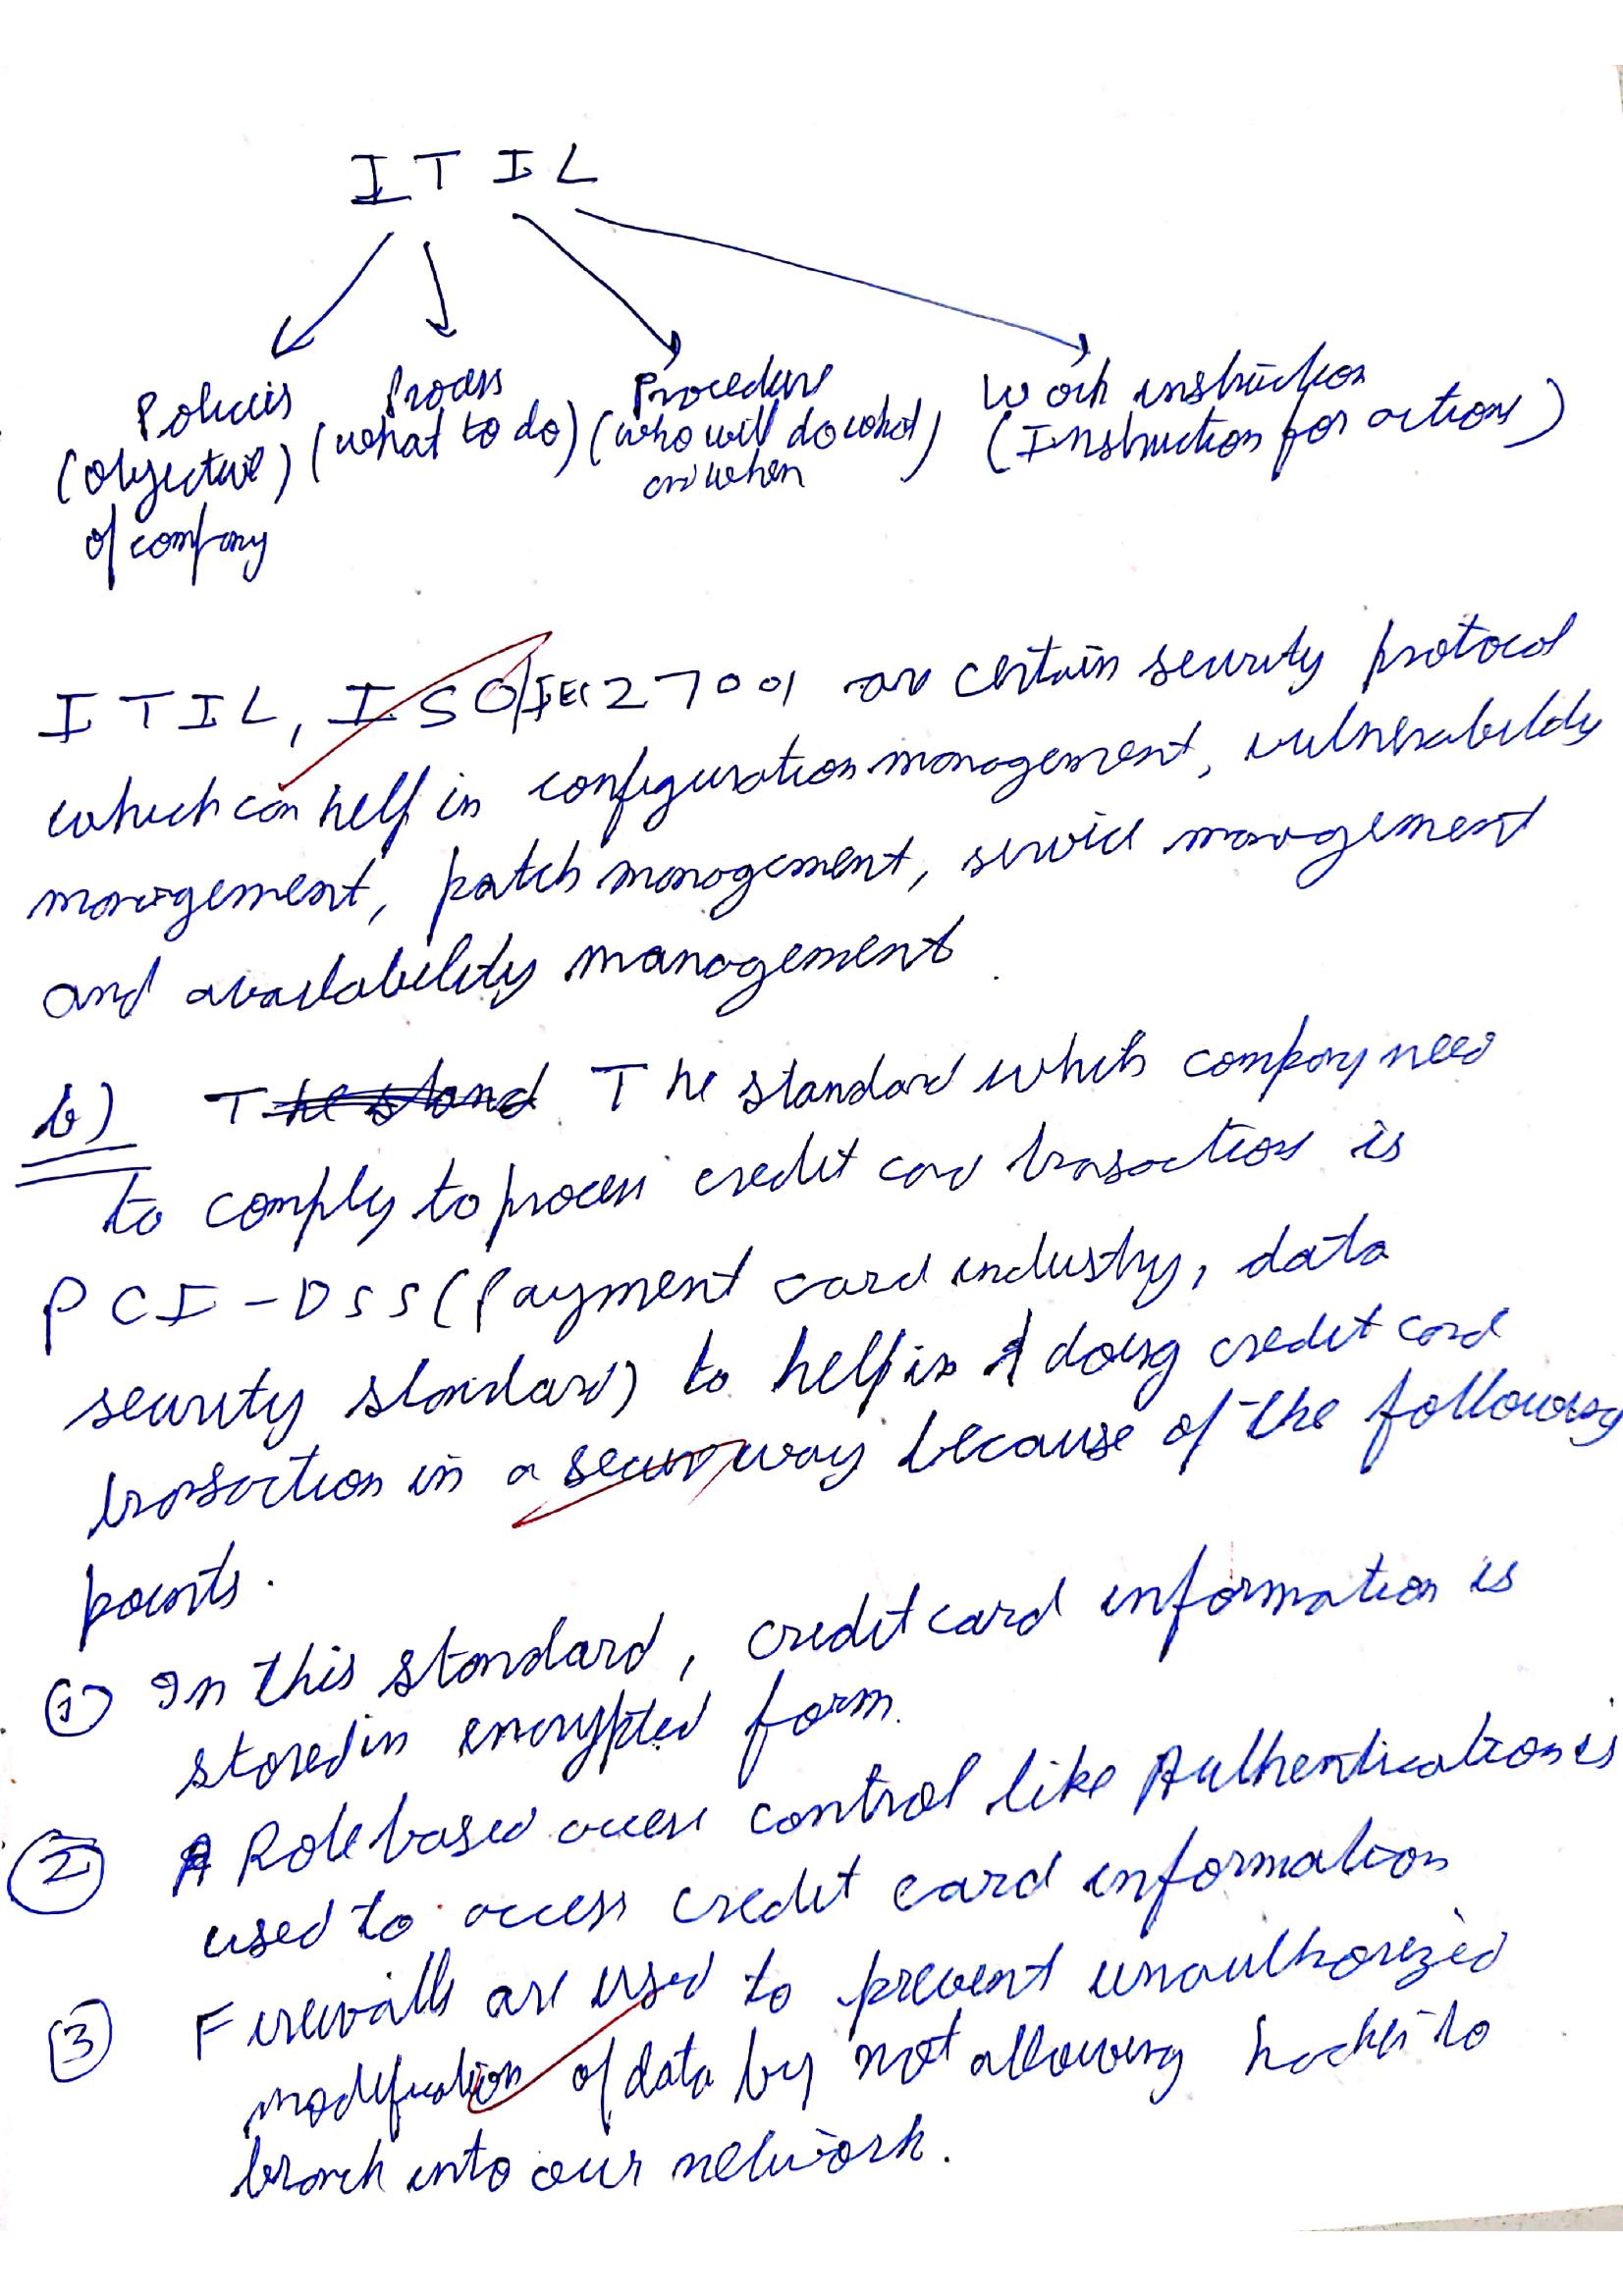 ITIL
Policies Process Procedure Work instruction
(objective) (what to do) (who will do what) (Instruction for actions)
of company and when
ITIL, ISO/IEC27001 are certain security protocol
which can help in configuration management, vulnerability
management, patch management, service management
and availability management.
b) The stand The standard which company need
to comply to process credit card transactions is
PCI-DSS (Payment card industry, data
security standard) to help in doing credit card
transaction in a secure way because of the following
points.
① In this standard, credit card information is
stored in encrypted form.
② Role based access control like Authentication is
used to access credit card information
③ Firewalls are used to prevent unauthorized
modification of data by not allowing hackers to
branch into our network.